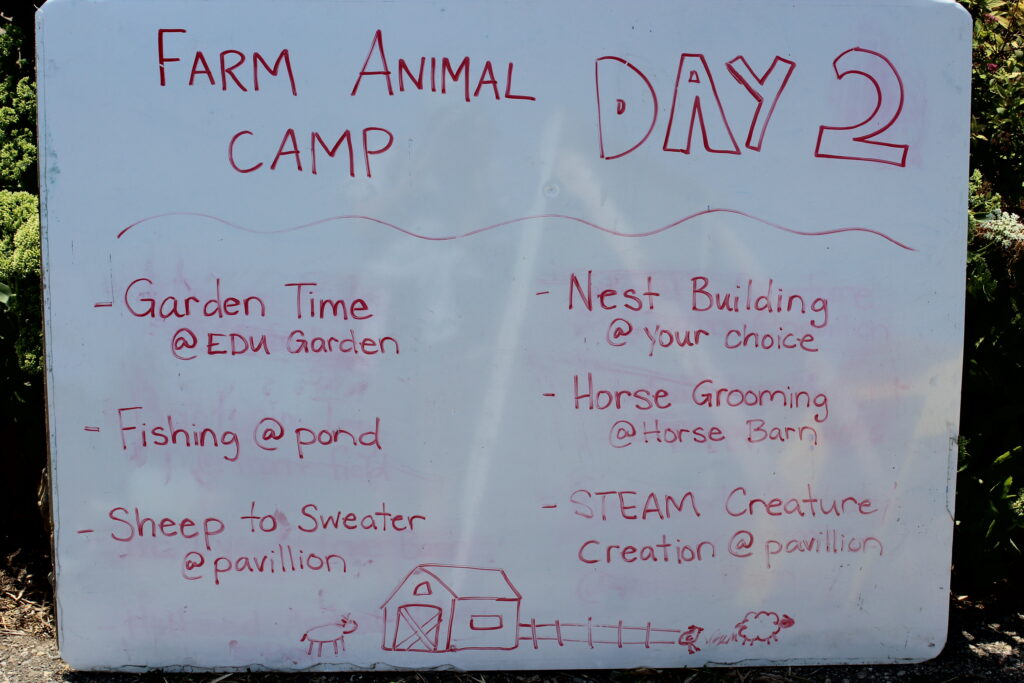 FARM ANIMAL
CAMP
DAY 2
- Garden Time
@ EDU Garden
- Fishing @ pond
- Sheep to Sweater
@ pavillion
- Nest Building
@ your choice
- Horse Grooming
@ Horse Barn
- STEAM Creature
Creation @ pavillion